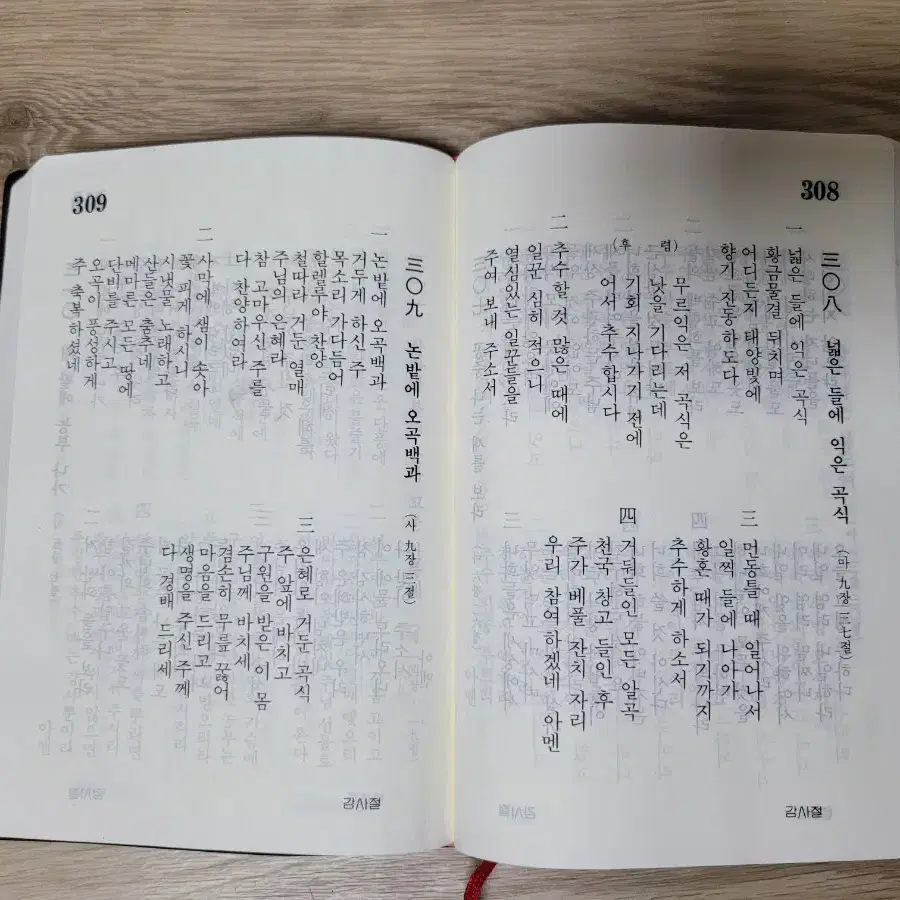 308
三〇八 넓은 들에 익은 곡식 (마 九장 三七절)
一 넓은 들에 익은 곡식
황금물결 뒤치며
어디든지 태양빛에
향기 진동하도다
(후렴)
무르익은 저 곡식은
낫을 기다리는데
기회 지나가기 전에
어서 추수합시다
二 추수할 것 많은 때에
일꾼 심히 적으니
열심있는 일꾼들을
주여 보내 주소서
三 먼동틀 때 일어나서
일찍 들에 나아가
황혼 때가 되기까지
추수하게 하소서
四 거둬들인 모든 알곡
천국 창고 들인 후
주가 베풀 잔치 자리
우리 참여하겠네 아멘
감사절
309
三〇九 논밭에 오곡백과 (사 九장 三절)
一 논밭에 오곡백과
거두게 하신 주
목소리 가다듬어
할렐루야 찬양
철따라 거둔 열매
주님의 은혜라
참 고마우신 주를
다 찬양하여라
二 사막에 샘이 솟아
꽃 피게 하시니
시냇물 노래하고
산들은 춤추네
메마른 모든 땅에
단비를 주시고
오곡이 풍성하게
주 축복하셨네
三 은혜로 거둔 곡식
주 앞에 바치고
구원을 받은 이 몸
주님께 바치세
겸손히 무릎 꿇어
마음을 드리고
생명을 주신 주께
다 경배 드리세
감사절